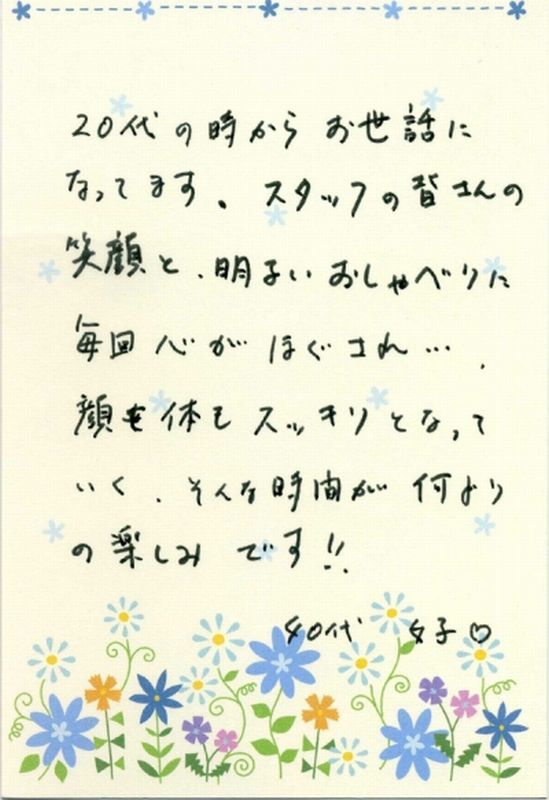 20代の時から お世話に
なってます。スタッフの皆さんの
笑顔と、明るいおしゃべりに
毎回 心が ほぐされ…、
顔も体も スッキリとなって
いく、そんな時間が 何より
の楽しみ です!!
40代 女子♡